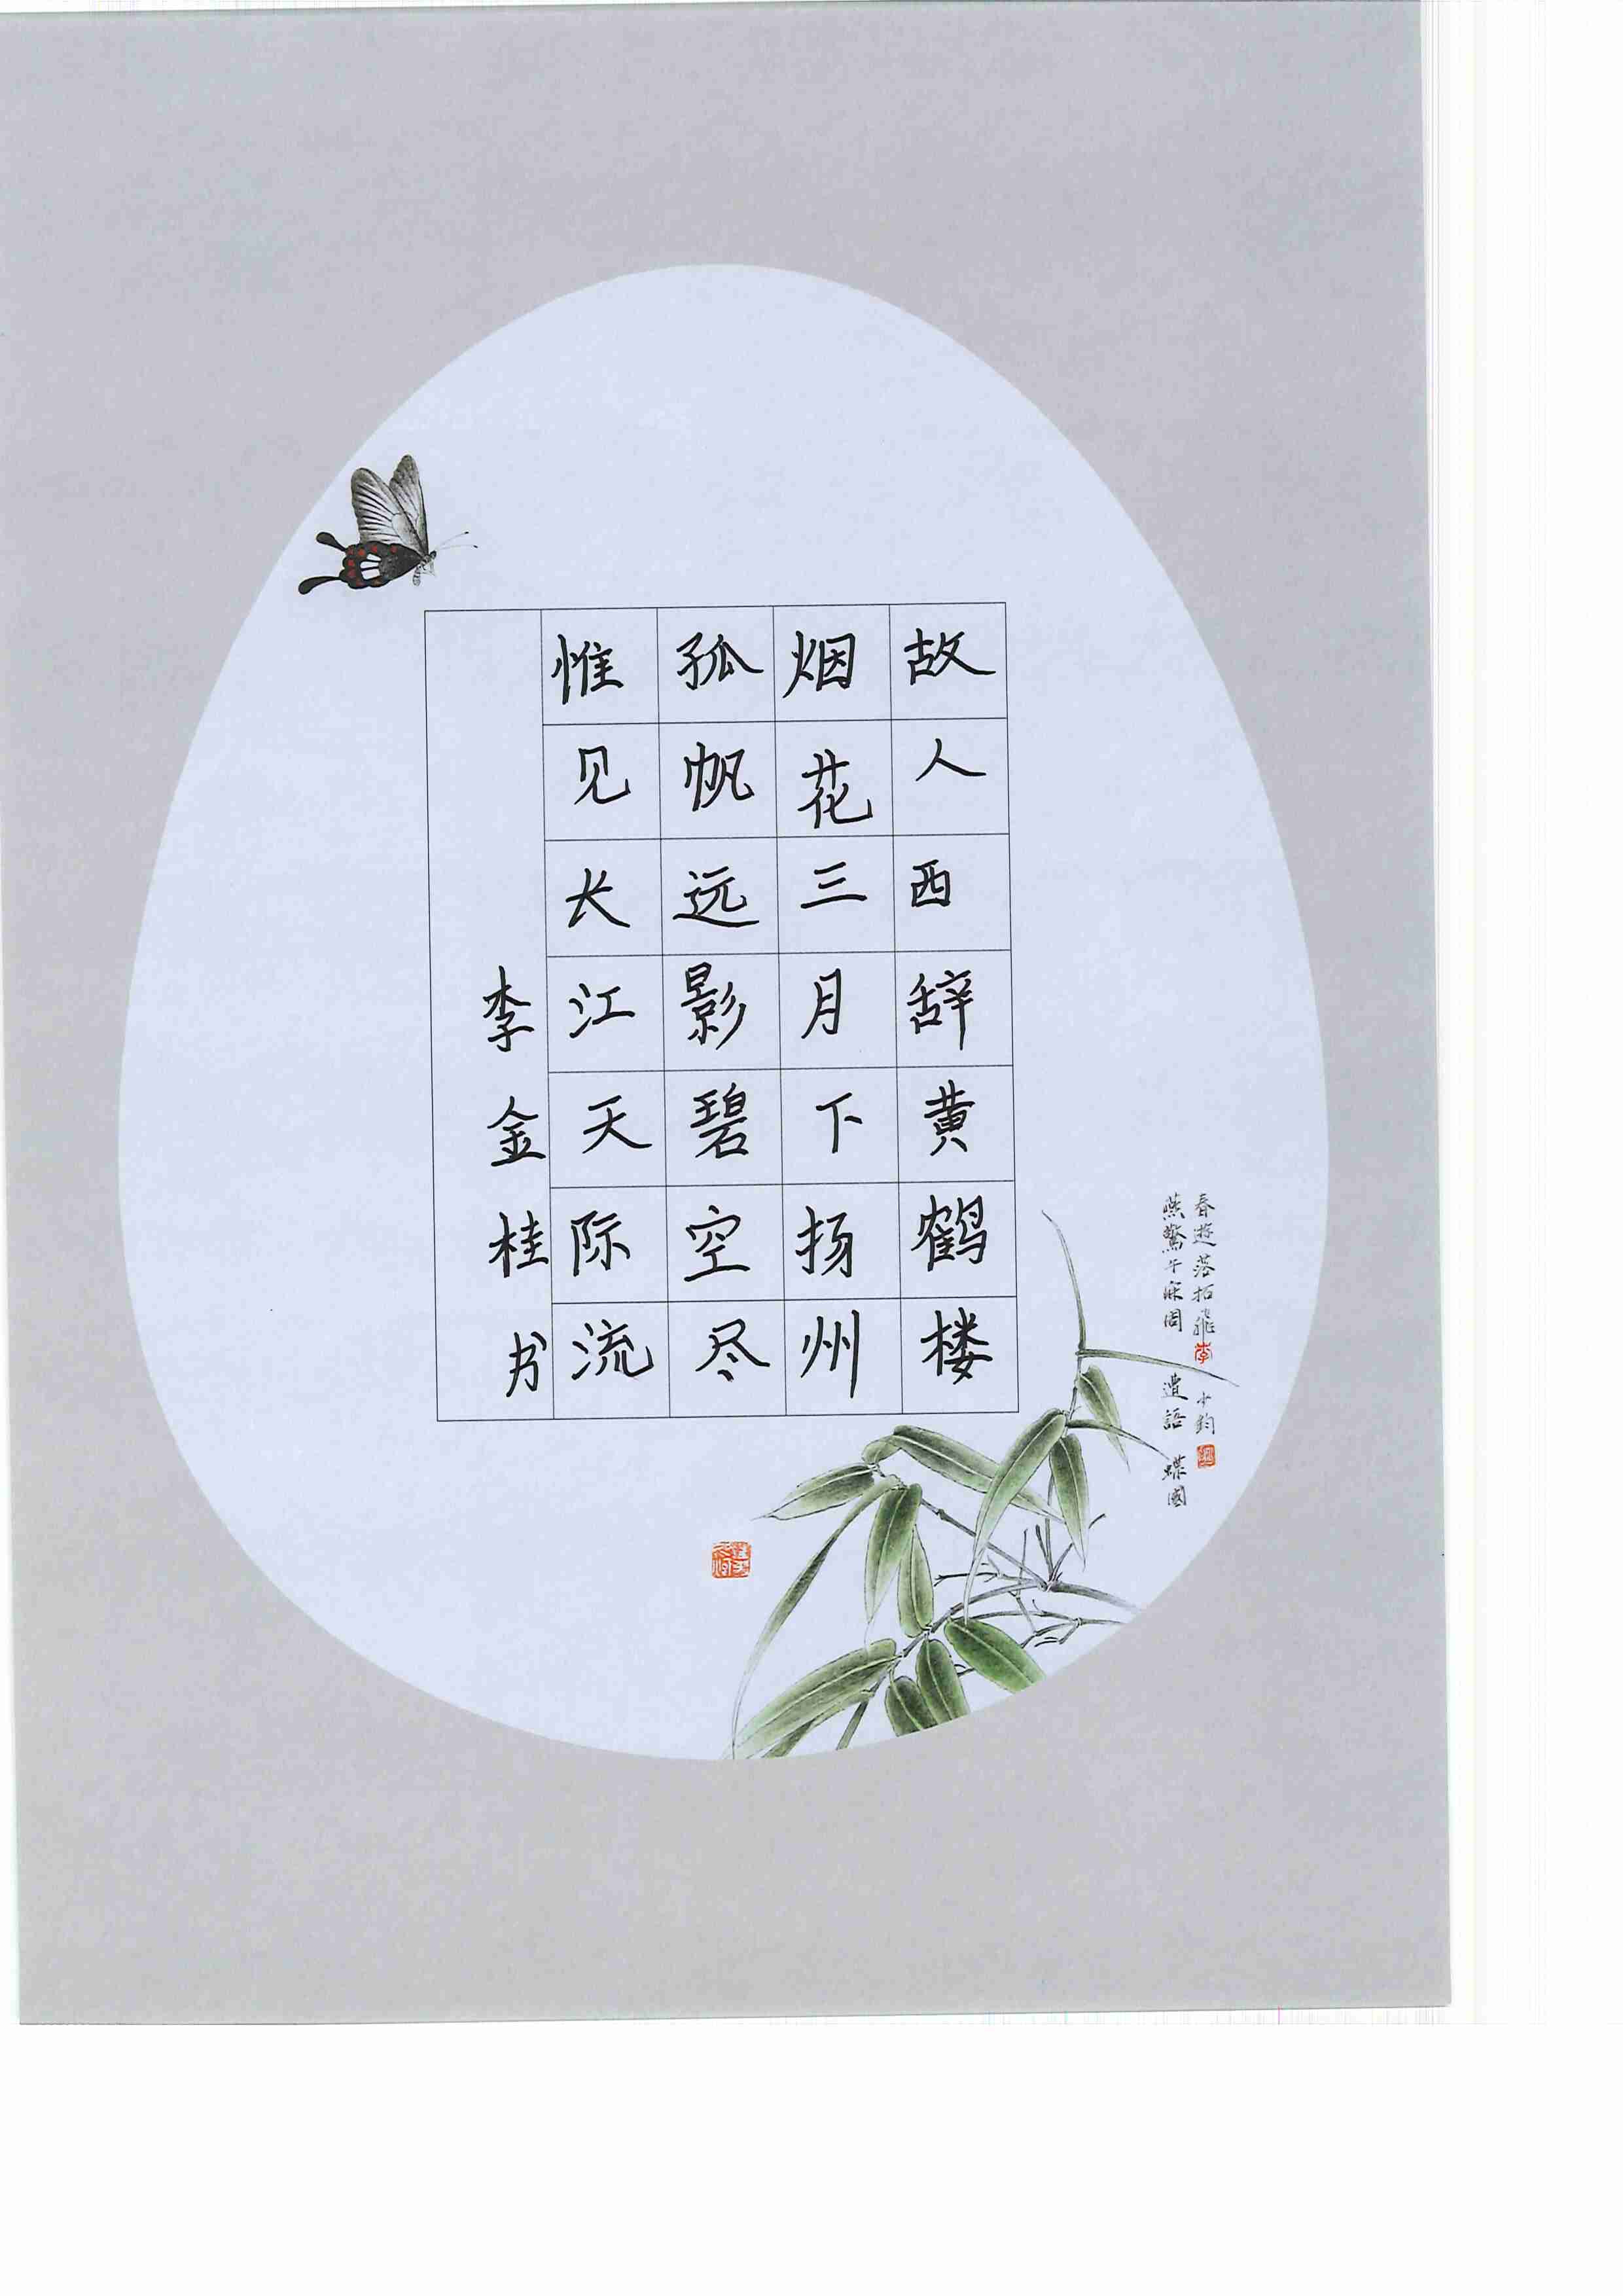 故人西辞黄鹤楼
烟花三月下扬州
孤帆远影碧空尽
惟见长江天际流
李金桂书
春遊落拓飛
少鈞
燕驚午寐同
遣語
蝶園